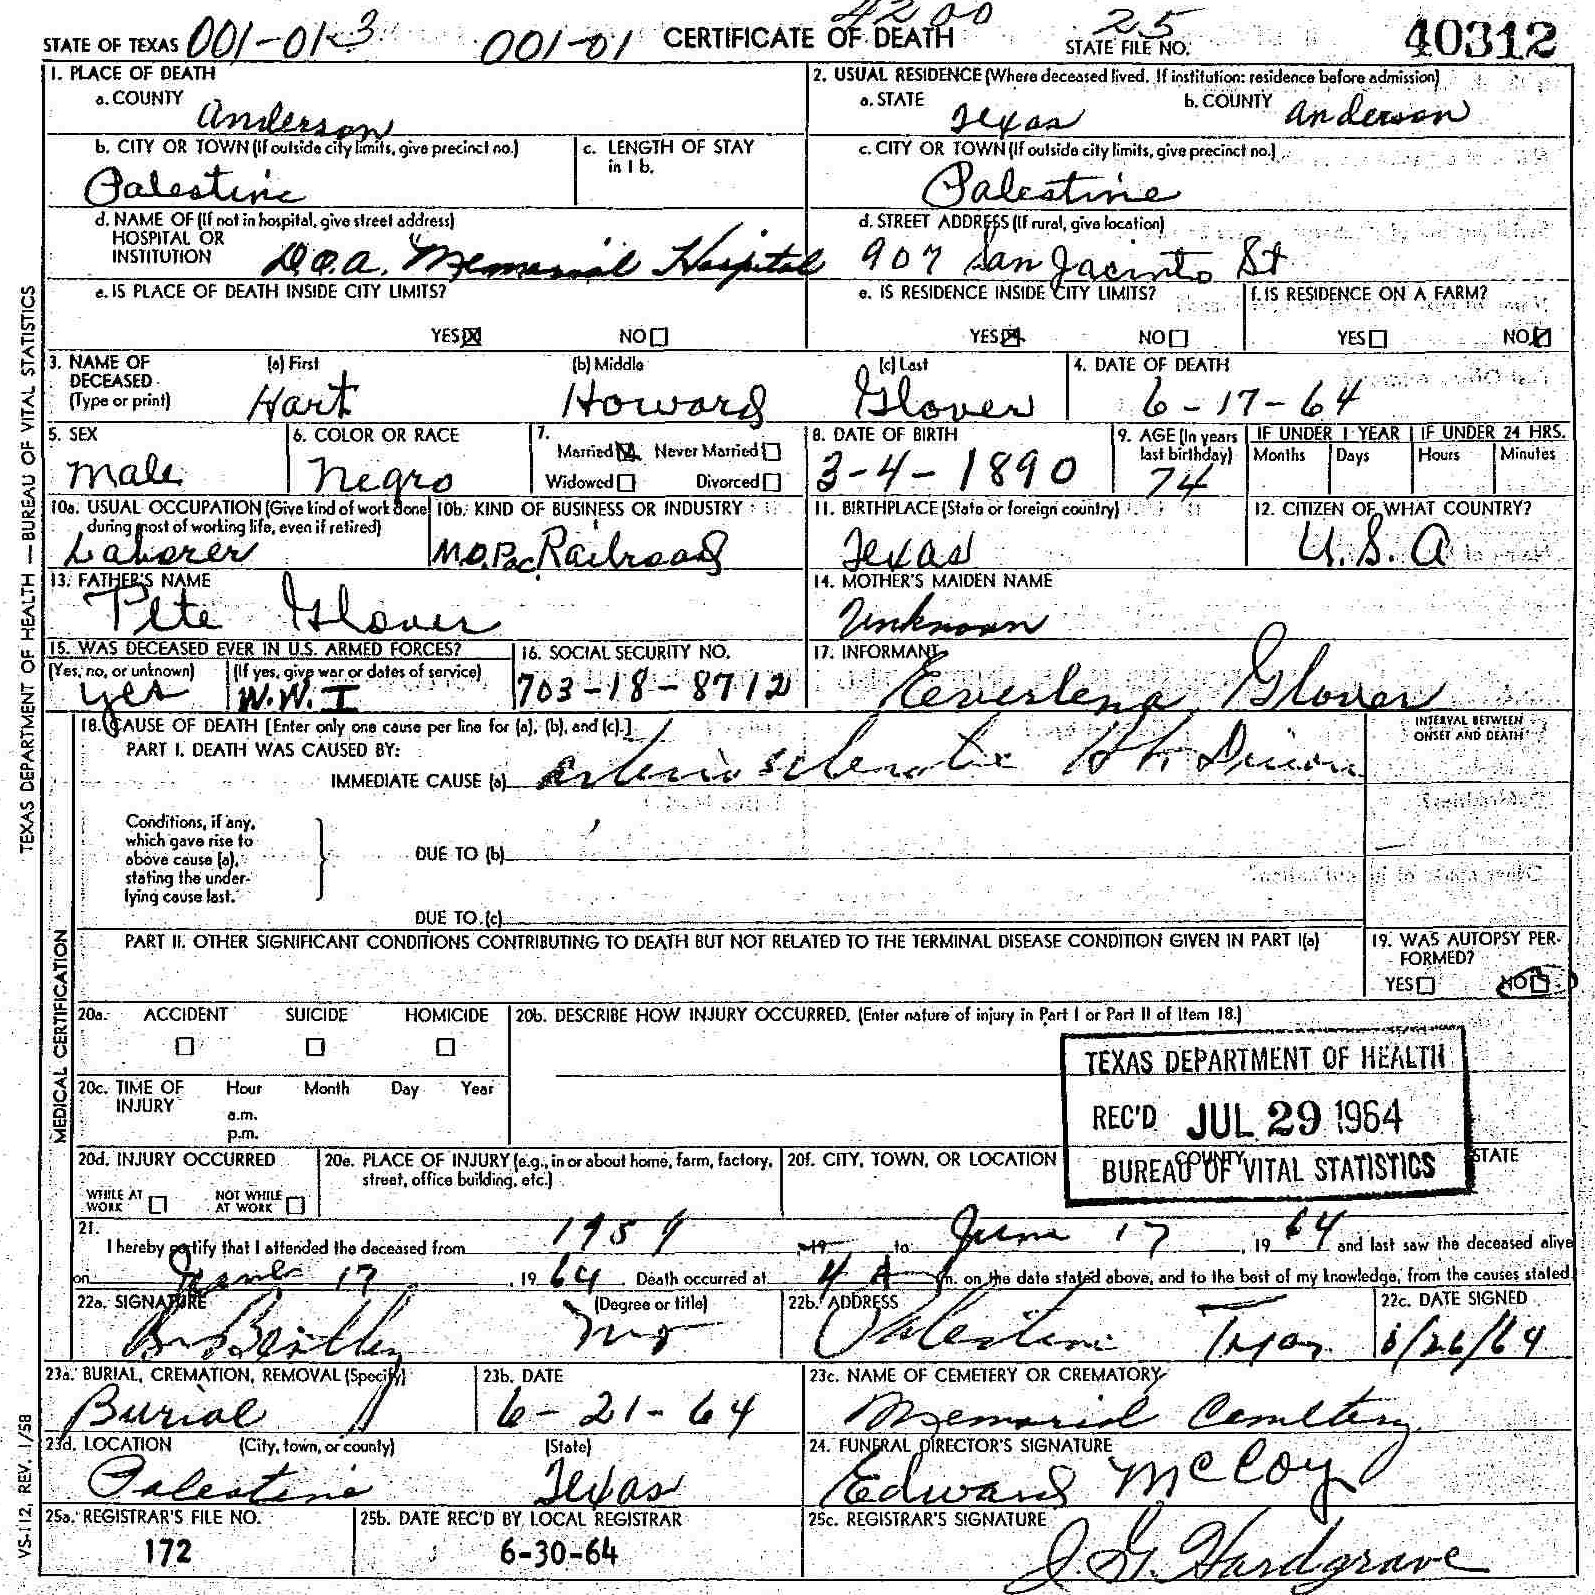 STATE OF TEXAS 001-01-3 001-01 CERTIFICATE OF DEATH 4200 25 STATE FILE NO. 40312
1. PLACE OF DEATH
a. COUNTY Anderson
2. USUAL RESIDENCE (Where deceased lived. If institution: residence before admission)
a. STATE Texas b. COUNTY Anderson
b. CITY OR TOWN (If outside city limits, give precinct no.) Palestine
c. LENGTH OF STAY in 1 b.
c. CITY OR TOWN (If outside city limits, give precinct no.) Palestine
d. NAME OF (If not in hospital, give street address)
HOSPITAL OR
INSTITUTION D.O.A. Memorial Hospital
d. STREET ADDRESS (If rural, give location)
907 San Jacinto St
e. IS PLACE OF DEATH INSIDE CITY LIMITS?
YES☒ NO☐
e. IS RESIDENCE INSIDE CITY LIMITS?
YES☒ NO☐
f. IS RESIDENCE ON A FARM?
YES☐ NO☒
3. NAME OF DECEASED (Type or print)
(a) First Hart
(b) Middle Howard
(c) Last Glover
4. DATE OF DEATH
6-17-64
5. SEX
Male
6. COLOR OR RACE
Negro
7. Married☒ Never Married☐
Widowed☐ Divorced☐
8. DATE OF BIRTH
3-4-1890
9. AGE (In years last birthday)
74
IF UNDER 1 YEAR
Months Days
IF UNDER 24 HRS.
Hours Minutes
10a. USUAL OCCUPATION (Give kind of work done during most of working life, even if retired)
Laborer
10b. KIND OF BUSINESS OR INDUSTRY
M.O.Pac. Railroad
11. BIRTHPLACE (State or foreign country)
Texas
12. CITIZEN OF WHAT COUNTRY?
U.S.A
13. FATHER'S NAME
Pete Glover
14. MOTHER'S MAIDEN NAME
Unknown
15. WAS DECEASED EVER IN U.S. ARMED FORCES?
(Yes, no, or unknown) yes
(If yes, give war or dates of service) W.W.I
16. SOCIAL SECURITY NO.
703-18-8712
17. INFORMANT
Eeverlena Glover
18. CAUSE OF DEATH [Enter only one cause per line for (a), (b), and (c).]
PART I. DEATH WAS CAUSED BY:
IMMEDIATE CAUSE (a) arteriosclerotic Ht.
INTERVAL BETWEEN
ONSET AND DEATH
Conditions, if any,
which gave rise to
above cause (a),
stating the under-
lying cause last.
DUE TO (b)
DUE TO (c)
PART II. OTHER SIGNIFICANT CONDITIONS CONTRIBUTING TO DEATH BUT NOT RELATED TO THE TERMINAL DISEASE CONDITION GIVEN IN PART I(a)
19. WAS AUTOPSY PER-
FORMED?
YES☐ NO☐
20a. ACCIDENT SUICIDE HOMICIDE
☐ ☐ ☐
20b. DESCRIBE HOW INJURY OCCURRED. (Enter nature of injury in Part I or Part II of Item 18.)
20c. TIME OF INJURY
Hour Month Day Year
a.m.
p.m.
TEXAS DEPARTMENT OF HEALTH
REC'D JUL 29 1964
BUREAU OF VITAL STATISTICS
20d. INJURY OCCURRED
WHILE AT WORK ☐ NOT WHILE AT WORK ☐
20e. PLACE OF INJURY (e.g., in or about home, farm, factory, street, office building, etc.)
20f. CITY, TOWN, OR LOCATION COUNTY STATE
21.
I hereby certify that I attended the deceased from 1959 19 to June 17, 1964 and last saw the deceased alive
on June 17, 1964. Death occurred at 4 A m. on the date stated above, and to the best of my knowledge, from the causes stated.
22a. SIGNATURE (Degree or title)
MD
22b. ADDRESS
Palestine Texas
22c. DATE SIGNED
6/26/64
23a. BURIAL, CREMATION, REMOVAL (Specify)
Burial
23b. DATE
6-21-64
23c. NAME OF CEMETERY OR CREMATORY
Memorial Cemetery
23d. LOCATION (City, town, or county) (State)
Palestine Texas
24. FUNERAL DIRECTOR'S SIGNATURE
Edward McCoy
25a. REGISTRAR'S FILE NO.
172
25b. DATE REC'D BY LOCAL REGISTRAR
6-30-64
25c. REGISTRAR'S SIGNATURE
J. G. Hardgrave
TEXAS DEPARTMENT OF HEALTH — BUREAU OF VITAL STATISTICS
MEDICAL CERTIFICATION
VS-112, REV. 1/58